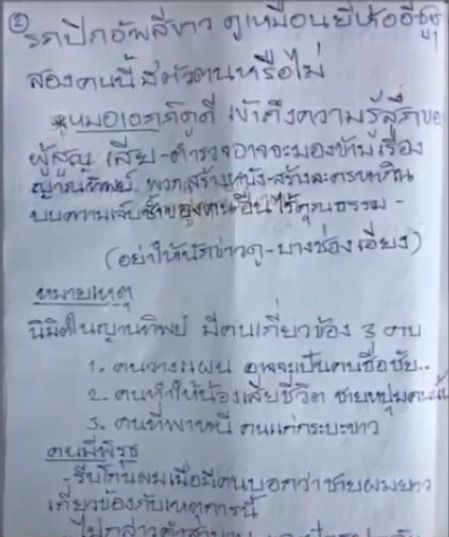 ②
รถปิกอัพสีขาว ดูเหมือนยี่ห้ออีซูซุ
สองคนนี้ มีตัวตนหรือไม่
*หมอเอกภ์ดูดี เข้าถึงความรู้สึกขอ
ผู้สูญเสีย-ตำรวจอาจจะมองข้ามเรื่อง
ญาณทิพย์ พวกสร้างหนัง-สร้างละครหากิน
บนความเจ็บช้ำของคนอื่นไร้คุณธรรม-
(อย่าให้นักข่าวดู-บางช่องเอียง)
หมายเหตุ
นิมิตในญานทิพย์ มีคนเกี่ยวข้อง 3 คน
1. คนวางแผน อาจจะเป็นคนชื่อชัย..
2. คนทำให้น้องเสียชีวิต ชายหนุ่มคนนั้น
3. คนที่พาหนี คนแก่กระบะขาว
คนมีพิรุธ
-รีบโกนผมเมื่อมีคนบอกว่าชายผมยาว
เกี่ยวข้องกับเหตุการนี้